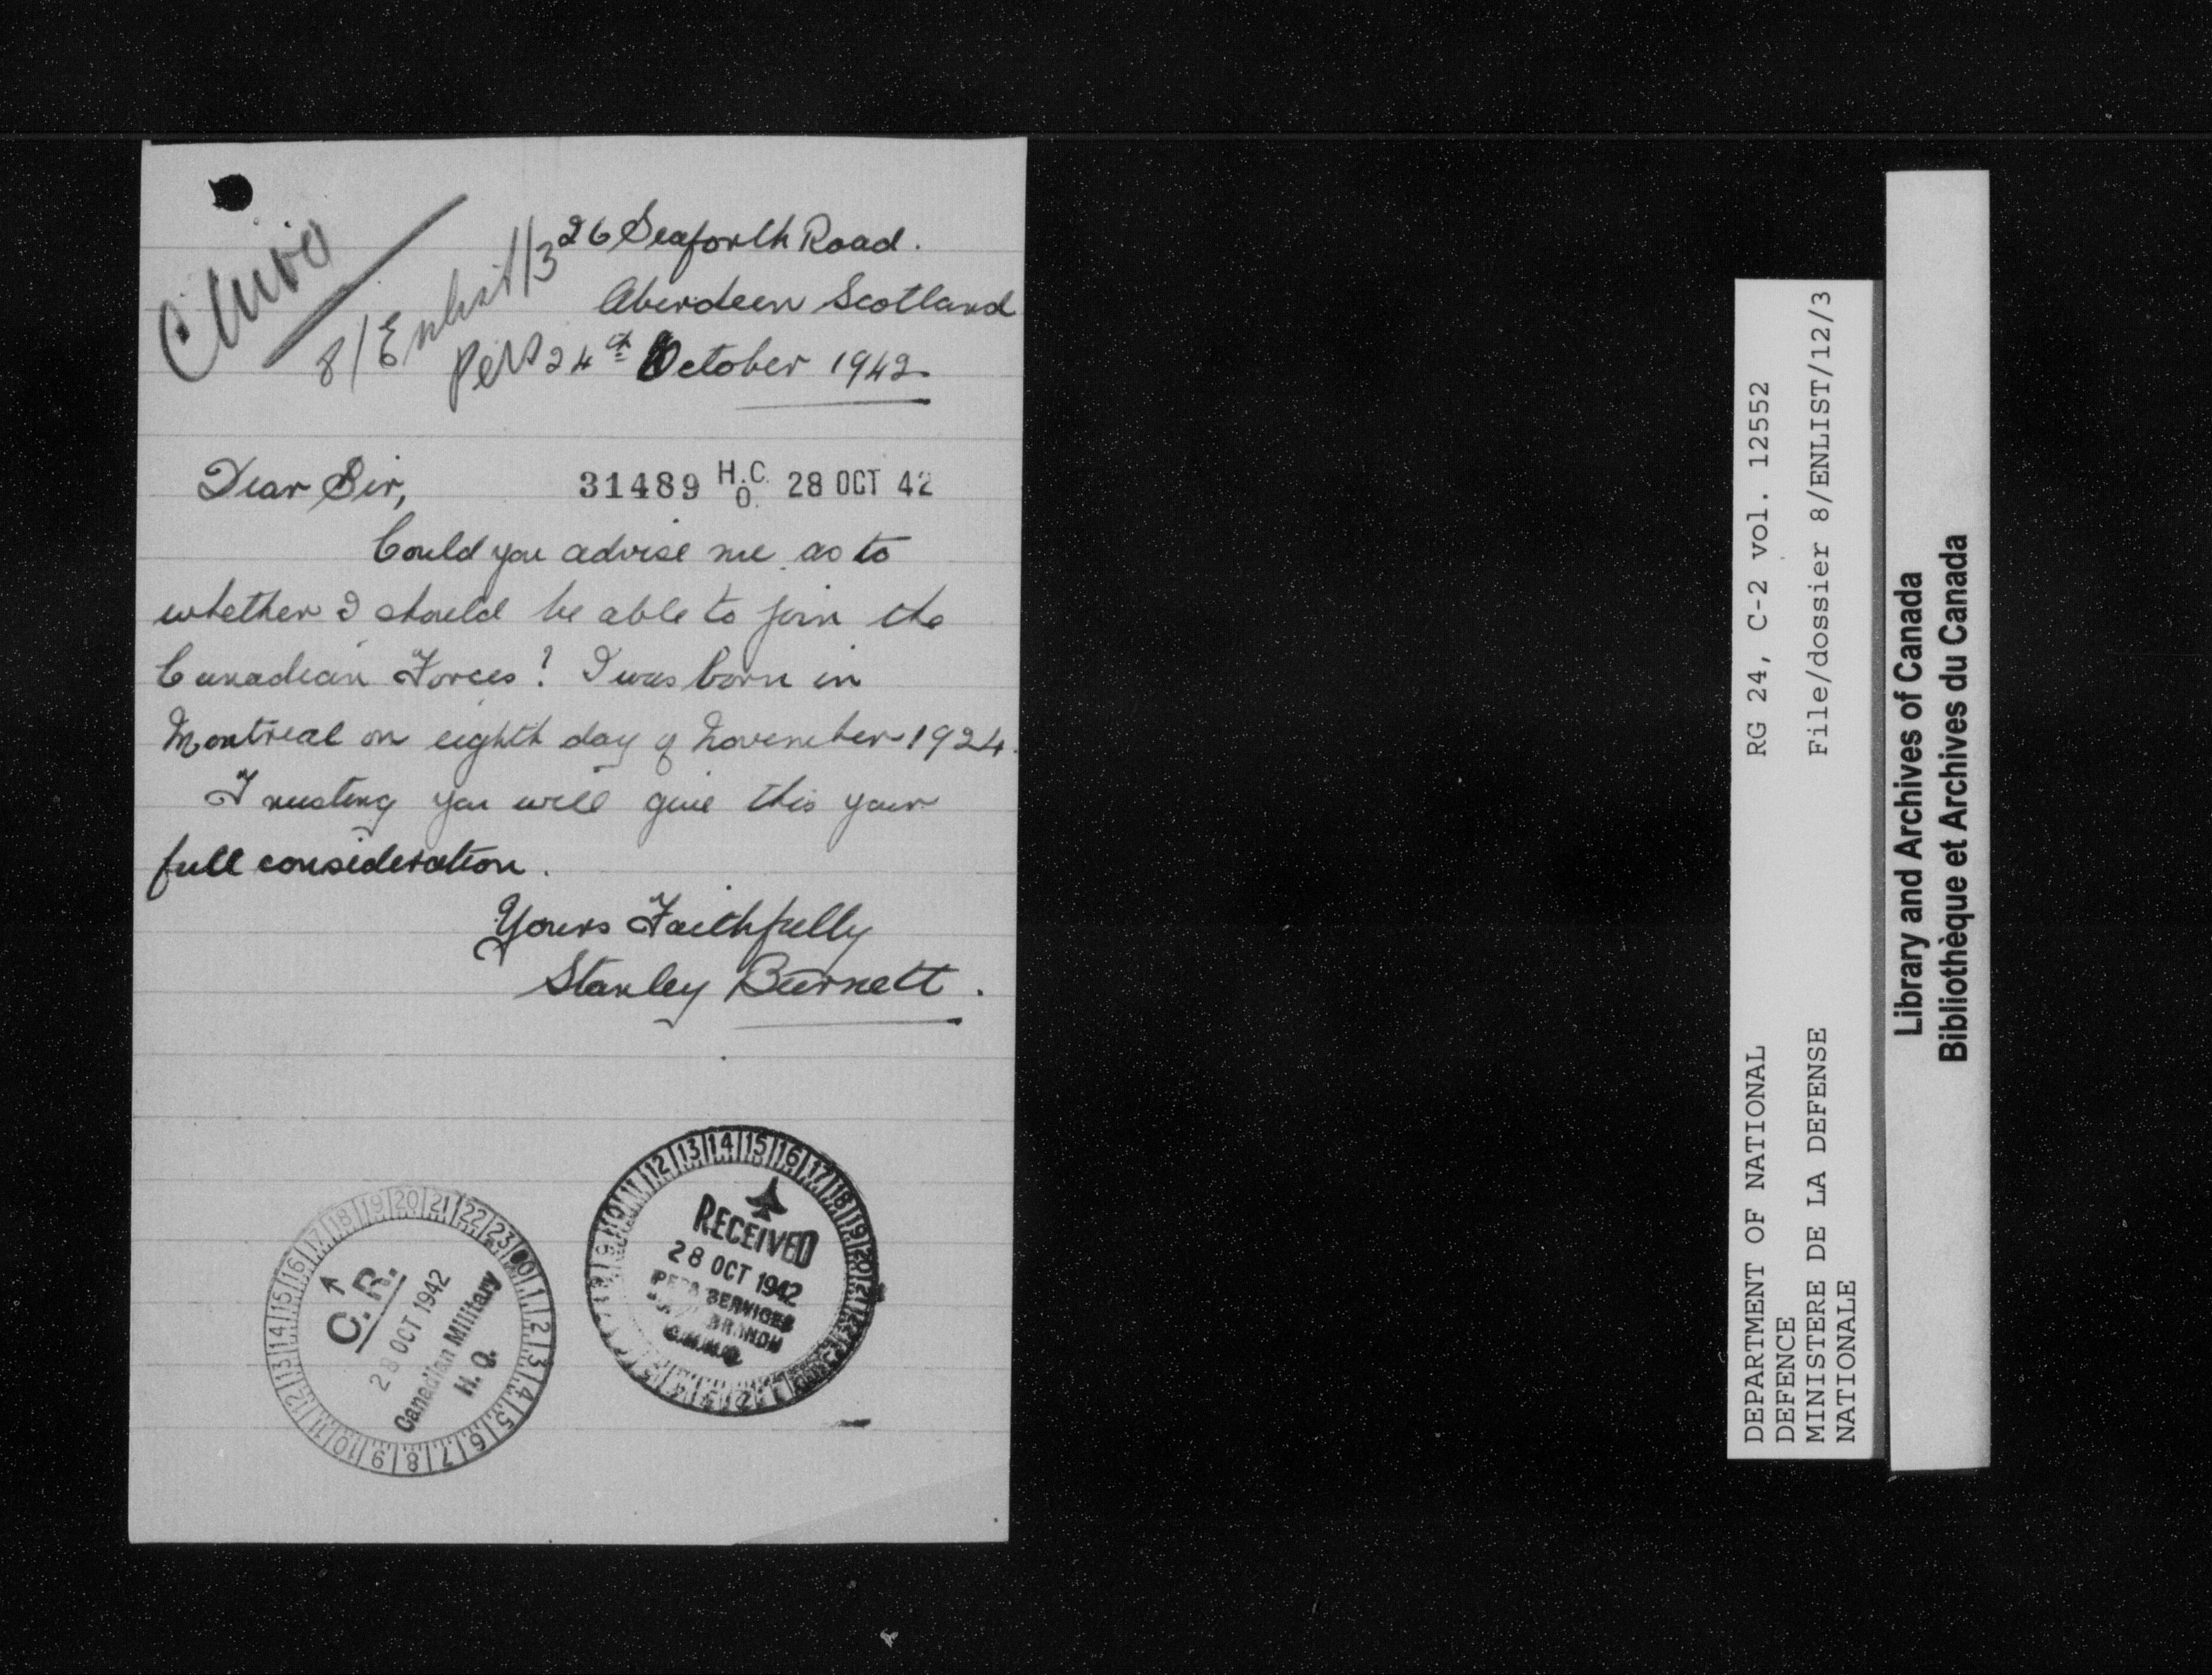 26 Seaforth Road.
Aberdeen Scotland
8/Enlist/1/3
Pers
24th October 1942.
Dear Sir,
31489 H.C.O. 28 OCT 42
Could you advise me as to
whether I should be able to join the
Canadian Forces? I was born in
Montreal on eighth day of November 1924.
Trusting you will give this your
full consideration.
Yours Faithfully
Stanley Burnett.
C.R.
28 OCT 1942
Canadian Military
H.Q.
RECEIVED
28 OCT 1942
SERVICES
BRANCH
C.M.H.Q.
DEPARTMENT OF NATIONAL
DEFENCE
MINISTERE DE LA DEFENSE
NATIONALE
RG 24, C-2 vol. 12552
File/dossier 8/ENLIST/12/3
Library and Archives of Canada
Bibliothèque et Archives du Canada